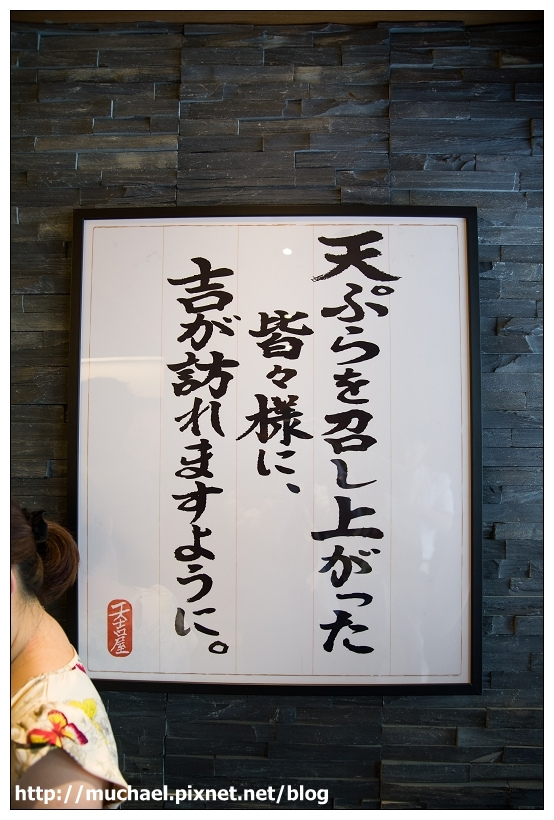 天ぷらを召し上がった
皆々様に、
吉が訪れますように。
天吉屋
http://muchael.pixnet.net/blog